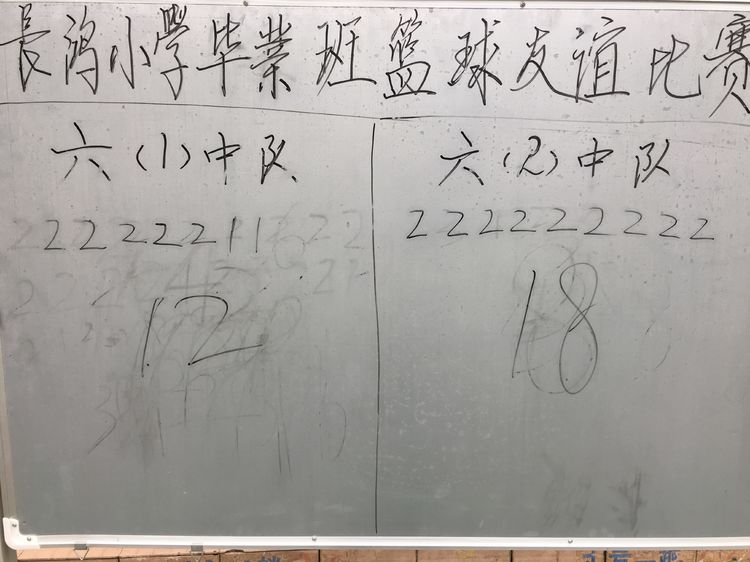 長鸿小學毕業班篮球友谊比赛
六(1)中队
六(2)中队
2222211
222222222
12
18